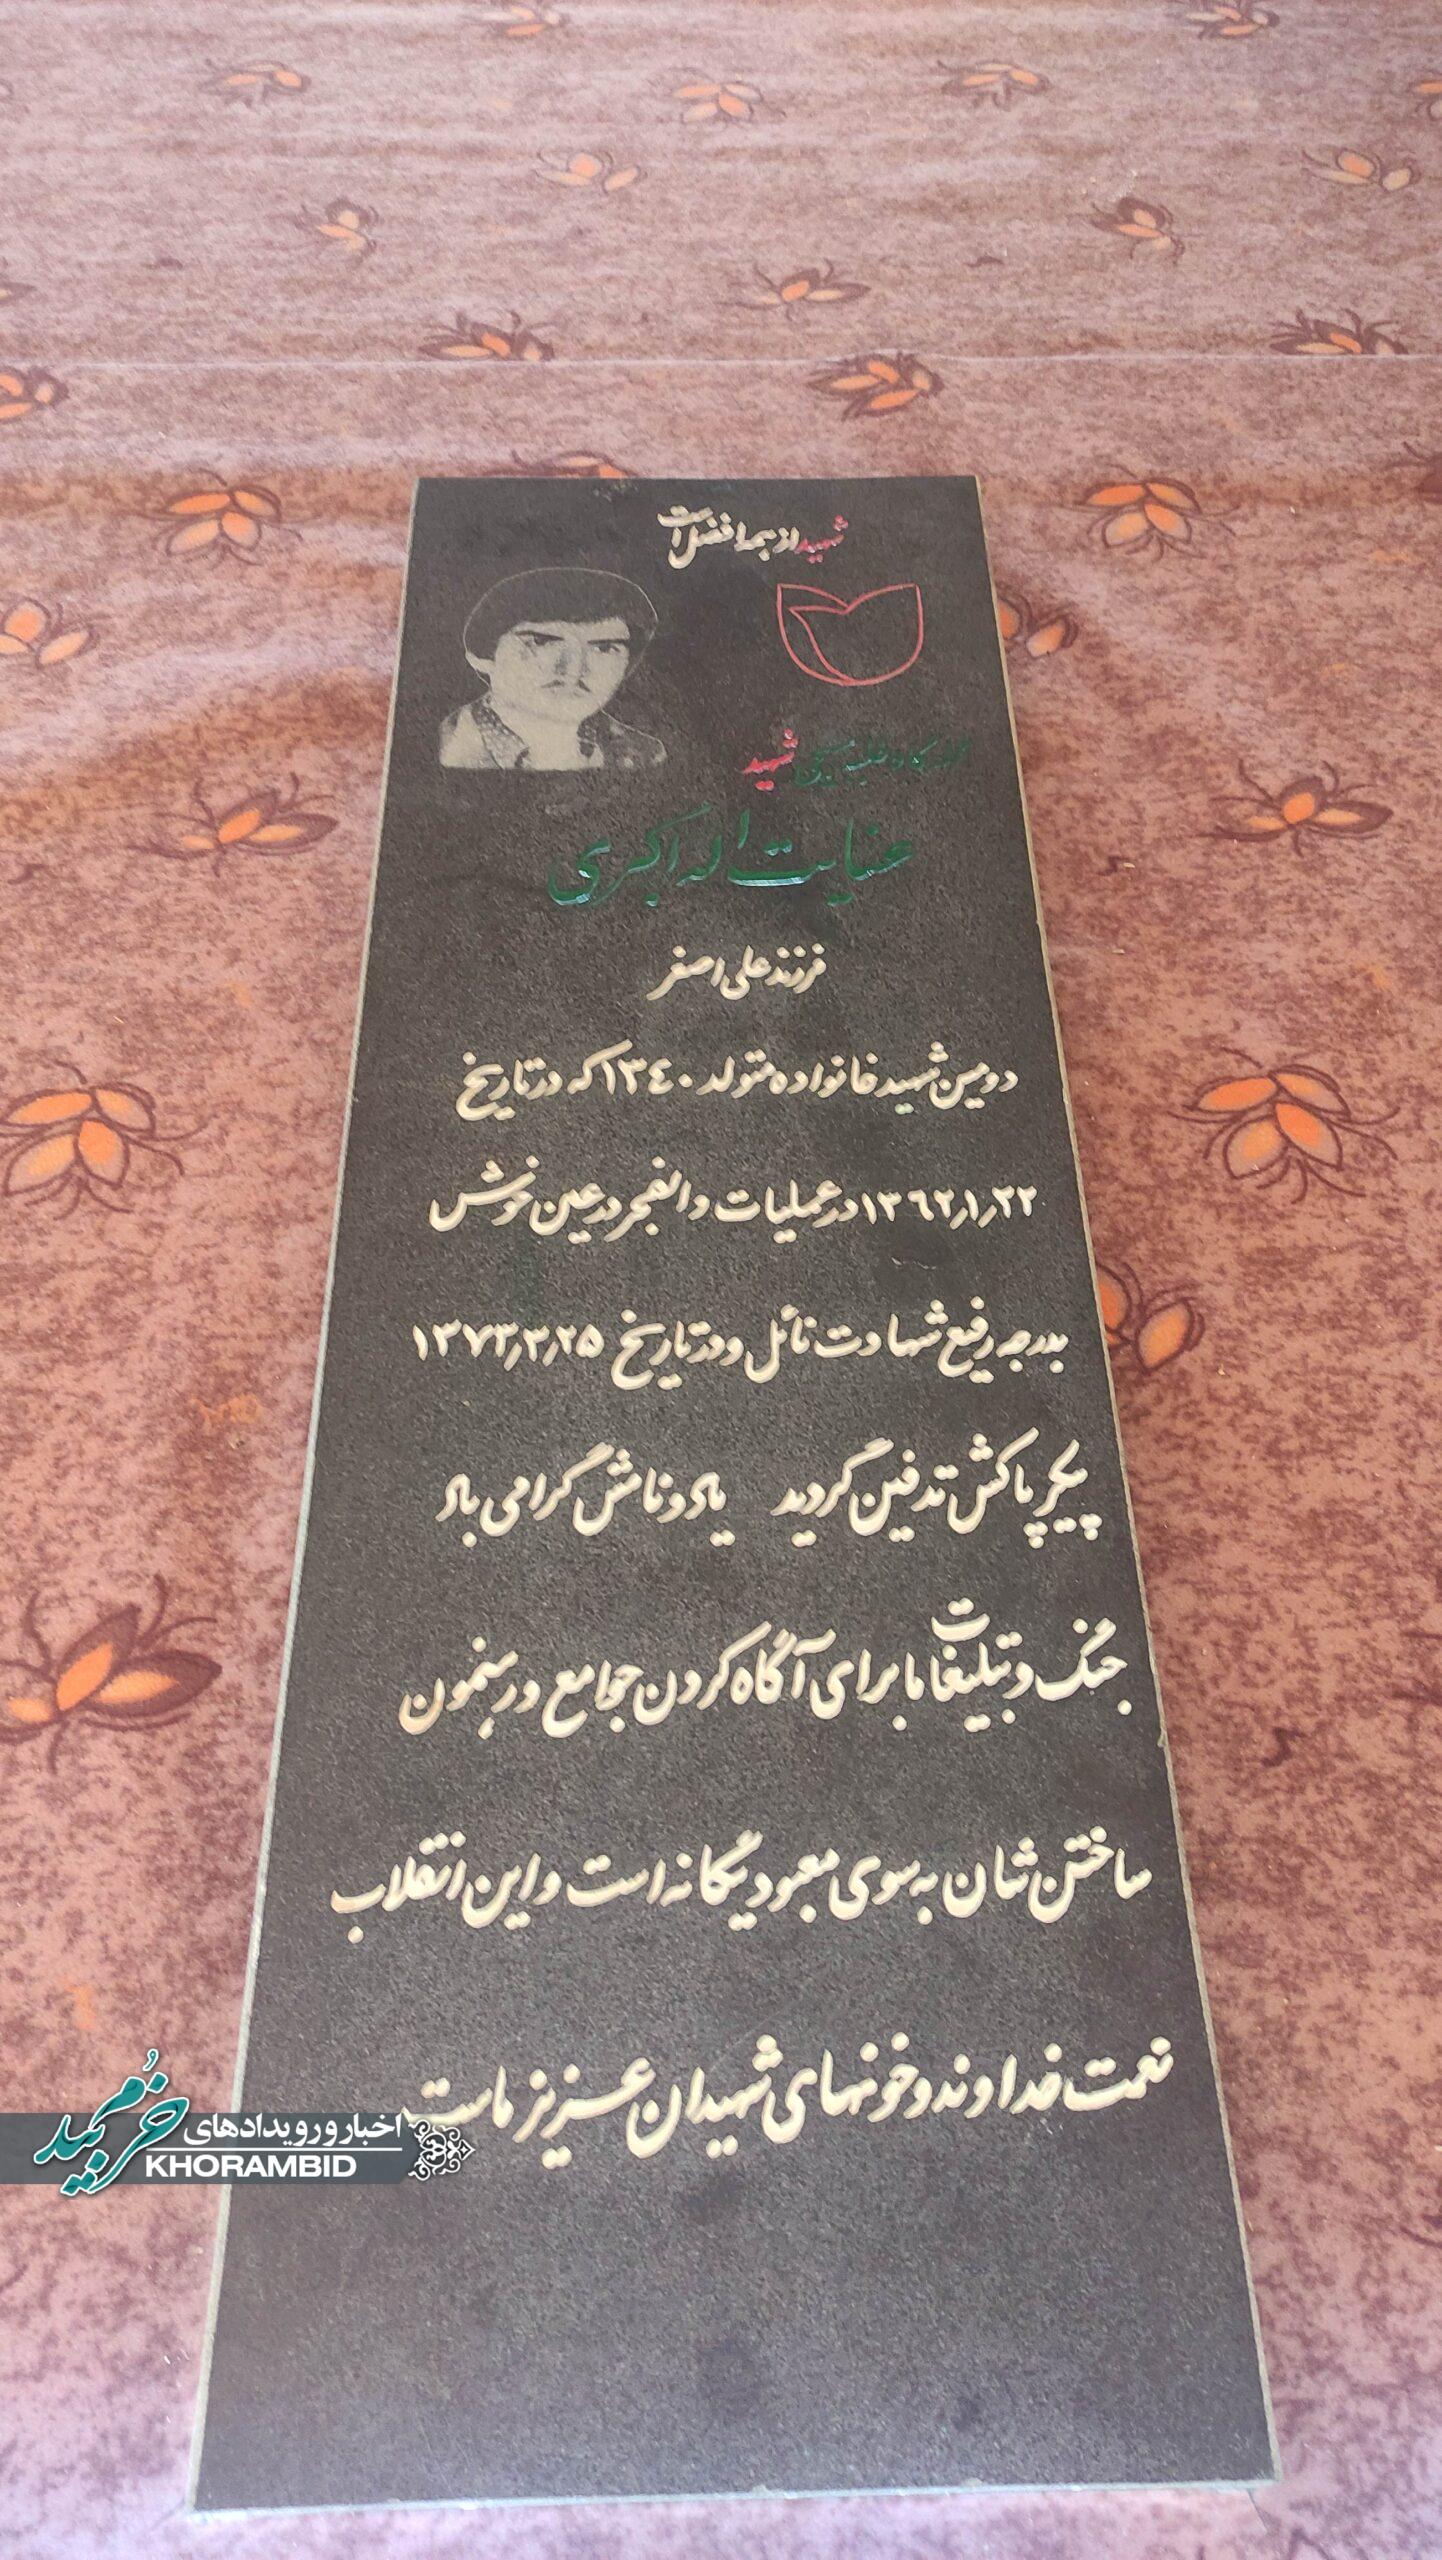 شهید از همه افضل است
آرامگاه طلبه بسیجی شهید
عنایت اله اکبری
فرزند علی اصغر
دومین شهید خانواده متولد ۱۳٤۰ که در تاریخ
۱۳٦۲٫۱٫۲۲ در عملیات والفجر در عین خوش
بدرجه رفیع شهادت نائل و در تاریخ ۱۳۷۳٫۳٫۲۵
پیکر پاکش تدفین گردید یاد و نامش گرامی باد
جنگ و تبلیغات ما برای آگاه کردن جوامع و رهنمون
ساختن شان به سوی معبود یگانه است و این انقلاب
نعمت خداوند و خونهای شهیدان عزیز ماست
خرمبید
اخبار و رویدادهای
KHORAMBID